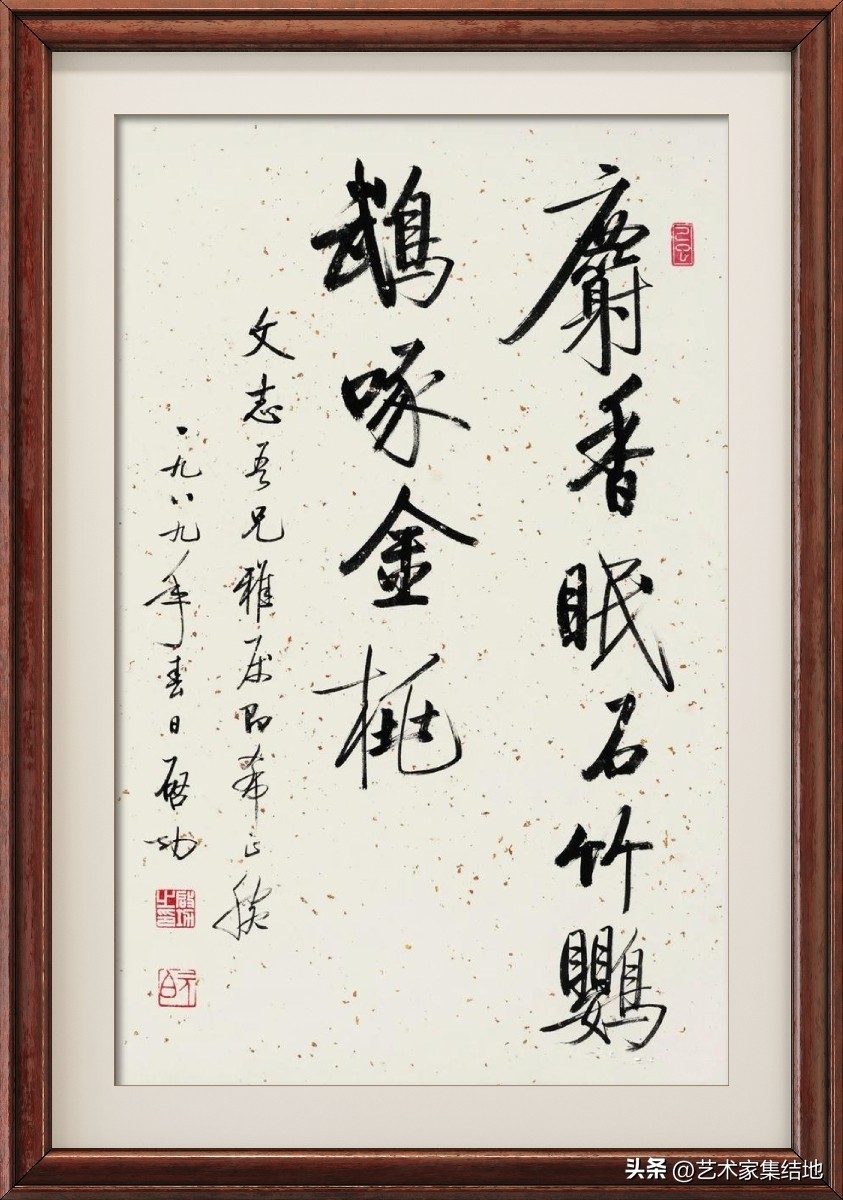 麝香眠石竹鸚
鵡啄金桃
文志吾兄雅属即希正腕
一九八九年春日启功
启功之印
元白
头条 @艺术家集结地